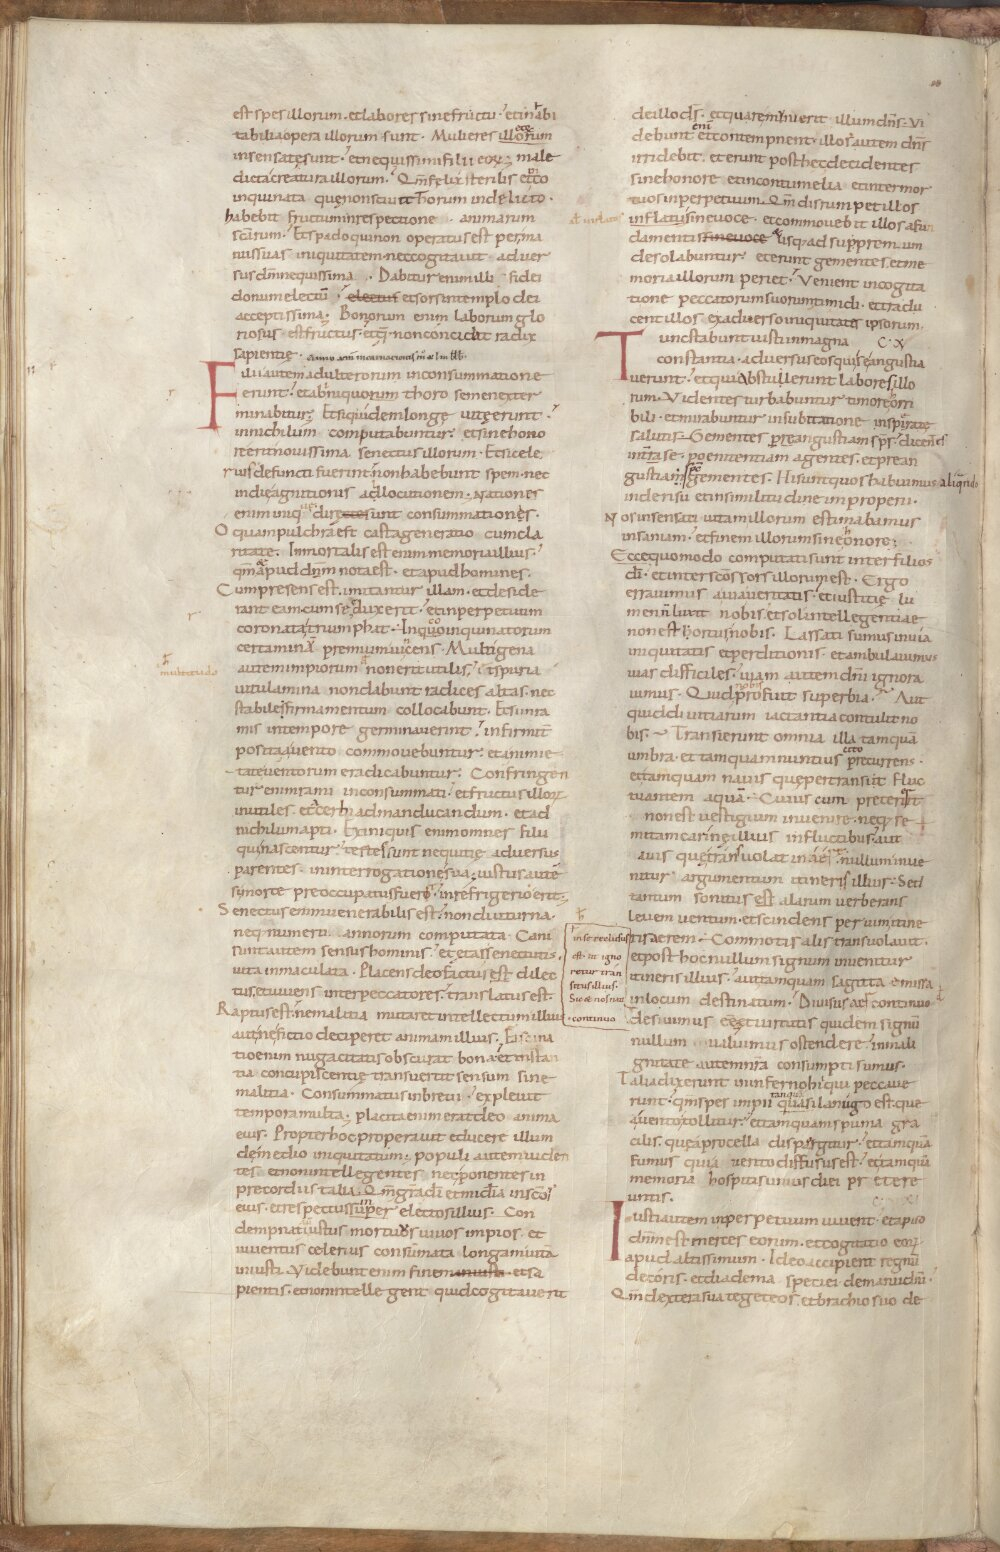 est spes illorum. et labores sine fructu. et inhabi
tabilia opera illorum sunt. Mulieres illorum
insensatę sunt. et nequissimi filii eoꝝ; male
dicta creatura illorum. Qm̄ felix sterilis et
inquinata quę nonsciuit thorum in delicto.
habebit fructum in respectione. animarum
scārum. Et spado qui non operatus est per ma
nus suas iniquitatem. nec cogitauit aduer
sus dm̄ nequissima. Dabitur enim illi fidei
donum electū. et sors in templo dei
acceptissima. Bonorum enim laborum glo
riosus est fructus. et q̄ non concidat radix
sapientię.
Filii autem adulterorum in consummatione
erunt. et ab iniquo thoro semen exter
minabitur. Et si quidem longę uitę erunt.
in nichilum computabuntur. et sine hono
re erit nouissima senectus illorum. Et si cele
rius defuncti fuerint. non habebunt spem. nec
in die agnitionis adlocutionem. Nationes
enim iniquę dirę sunt consummationes.
O quam pulchra est casta generatio cum cla
ritate. Inmortalis est enim memoria illius.
qm̄ apud dm̄ nota est. et apud homines.
Cum presens est. imitantur illam. et deside
rant eam cum se eduxerit. et in perpetuum
coronata triumphat. Inquoinquinatorum
certaminū premium uincens. Multigena
autem impiorum non erit utilis. et spuria
uitulamina non dabunt radices altas. nec
stabile firmamentum collocabunt. Et si in ra
mis in tempore germinauerint. infirmit
posita auento commouebuntur. et a nimie
tate uentorum eradicabuntur. Confringen
tur enim rami inconsummati. et fructus illorꝝ
inutiles. et acerbi ad manducandum. et ad
nichilum apti. Ex iniquis enim omnes filii
qui nascentur. testes sunt nequitię aduersus
parentes. in interrogatione sua. iustus autē
si morte preoccupatus fuerit. in refrigerio erit.
Senectus enim uenerabilis est. non diuturna.
neq; numero annorum computata. Cani
sunt autem sensus hominis. et etas senectutis.
uita inmaculata. Placens deo factus est dilec
tus. et uiuens inter peccatores. translatus est.
Raptus est. ne malitia mutaret intellectum illius
aut ne fictio deciperet animam illius. Fascina
tio enim nugacitatis obscurat bona. et inconstan
tia concupiscentię transuertit sensum sine
malitia. Consummatus in breui. expleuit
tempora multa. placita enim erat deo anima
eius. Propter hoc properauit educere illum
de medio iniquitatum. populi autem uiden
tes et non intellegentes. nec ponentes in
precordiis talia. Qm̄ grā dī et mīdia in scōs
eius. et respectus super electos illius. Con
dempnat iustus mortuus uiuos impios. et
iuuentus celerius consūmata longam uitā
iniusti. Videbunt enim finem et sa
pientis. et non intellegent quid cogitauerit
multitudo
de illo ds̄. et quare minuerit illum dn̄s. Vi
debunt eni et contempnent. illos autem dn̄s
irridebit. et erunt post hec decidentes
sine honore et in contumelia et inter mor
tuos in perpetuum. Qm̄ disrumpet illos
inflatus sine uoce. et commouebit illos a fun
damentis sine uoce usq; ad suppremum
desolabuntur et erunt gementes. et me
moria illorum periet. Venient in cogita
tione peccatorum suorum timidi. et tradu
cent illos ex aduerso iniquitates ipsorum.
Tunc stabunt iusti in magna C. X
constantia. aduersus eos qui se angustia
uerunt. et qui abstullerunt labores illo
rum. Videntes turbabuntur timore orri
bili. et mirabuntur in subitatione insperate
salutis. Gementes pre angustiam sps̄. dicentes
intra se. poenitentiam agentes. et pre an
gustiam sps̄ gementes. Hi sunt quos habuimus aliq̄ndo
in derisu et in similitudine improperii.
Nos insensati uitam illorum estimabamus
insaniam. et finem illorum sine honore.
Ecce quomodo computati sunt inter filios
dī. et inter scōs sors illorum est. Ergo
errauimus a uia ueritatis. et iustitię lu
men n̄ luxit nobis. et sol intellegentiae
non est hortus nobis. Lassati sumus in uia
iniquitatis et perditionis. et ambulauimus
uias difficiles. uiam autem dn̄i ignora
uimus. Quid nobis profuit superbia. Aut
quid diuitiarum iactantia contulit no
bis. Transierunt omnia illa tamquā
umbra. et tamquam nuntius cito precurrens.
et tamquam nauis quę pertransiit fluc
tuantem aquā. Cuius cum preterierit
non est uestigium inuenire. neq; se
mitam carinę illius in fluctibus. aut
auis quę transuolat in aere. nullum inue
nitur argumentum itineris illius. Sed
tantum sonitus est alarum uerberans
leuem uentum. et scindens per uim itine
ris aerem. Commotis alis transuolauit.
et post hoc nullum signum inuenitur
itineris illius. aut tamquam sagitta emissa
in locum destinatum. Diuisus aer continuo
desiuimus esse. et uirtutis quidem signū
nullum ualuimus ostendere. in mali
gnitate autem nr̄a consumpti sumus.
Talia dixerunt in inferno hi qui peccaue
runt. qm̄ spes impii tamquam quasi lanugo est. que
a uento tollitur. et tamquam spuma gra
cilis. quę a procella dispergitur. et tamquā
fumus quia uento diffusus est. et tamquā
memoria hospitis unius diei pretere
untis. C. XI
Iusti autem in perpetuum uiuent. et apud
dn̄m est merces eorum. et cogitatio eoꝝ
apud altissimum. Ideo accipient regnū
decoris. et diadema speciei de manu dn̄i.
Qm̄ dextera sua teget eos. et brachio suo de
in se reclusus
est. ut igno
retur tran
situs illius.
Sic et nos nati
continuo